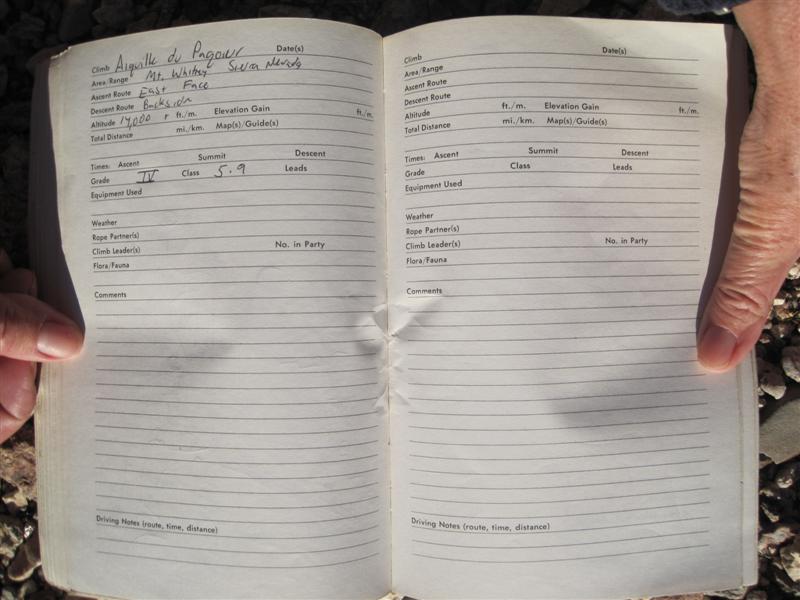 Climb Aiguille du Paqour Date(s)
Area/Range Mt. Whitney Sierra Nevada
Ascent Route East Face
Descent Route Backside
Altitude 14,000 + ft./m. Elevation Gain ft./m.
Total Distance mi./km. Map(s)/Guide(s)
Times: Ascent Summit Descent
Grade IV Class 5.9 Leads
Equipment Used
Weather
Rope Partner(s)
Climb Leader(s) No. in Party
Flora/Fauna
Comments
Driving Notes (route, time, distance)
Climb Date(s)
Area/Range
Ascent Route
Descent Route
Altitude ft./m. Elevation Gain ft./m.
Total Distance mi./km. Map(s)/Guide(s)
Times: Ascent Summit Descent
Grade Class Leads
Equipment Used
Weather
Rope Partner(s)
Climb Leader(s) No. in Party
Flora/Fauna
Comments
Driving Notes (route, time, distance)